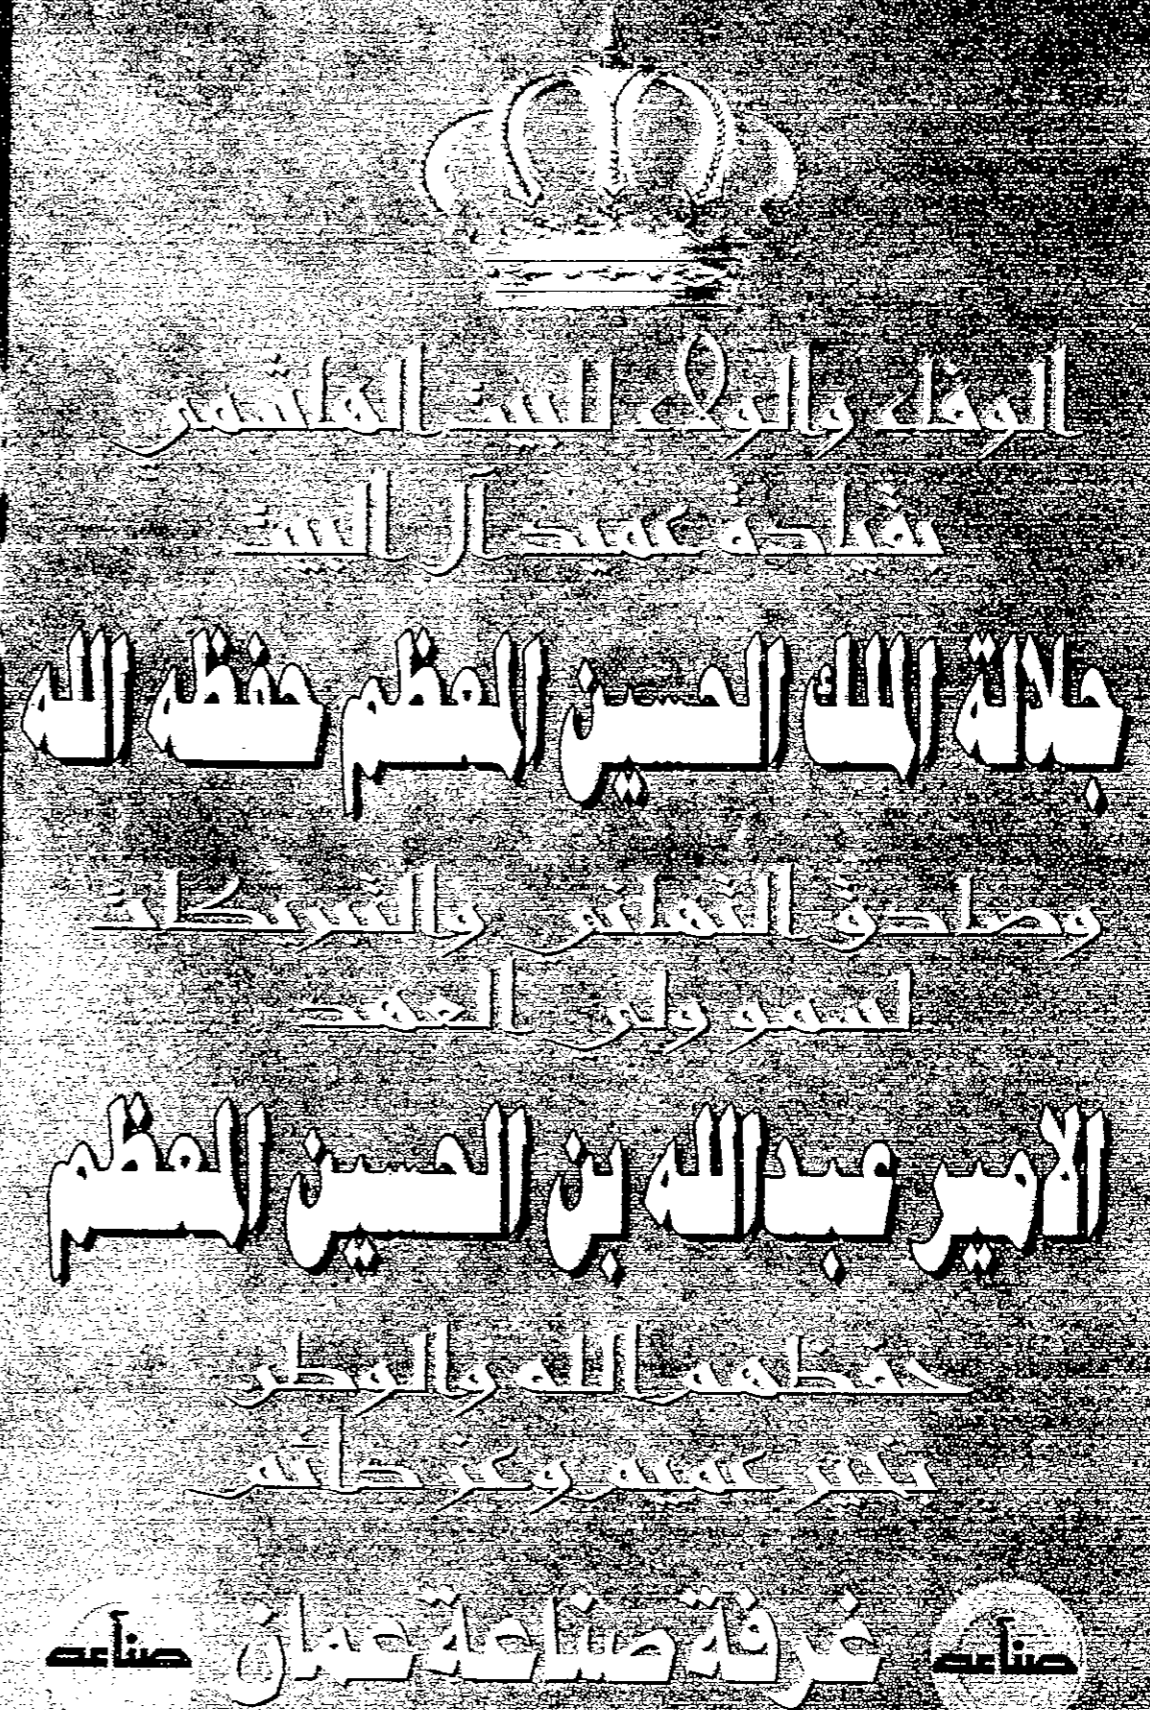 الوفاء والولاء للبيت الهاشمي
بقيادة عميد آل البيت
جلالة الملك الحسين المعظم حفظه الله
وصادق التهاني والتبريكات
لسمو ولي العهد
الامير عبدالله بن الحسين المعظم
حفظهم الله والوطن
بخير عميم وعز دائم
غرفة صناعة عمان
صناعة
صناعة